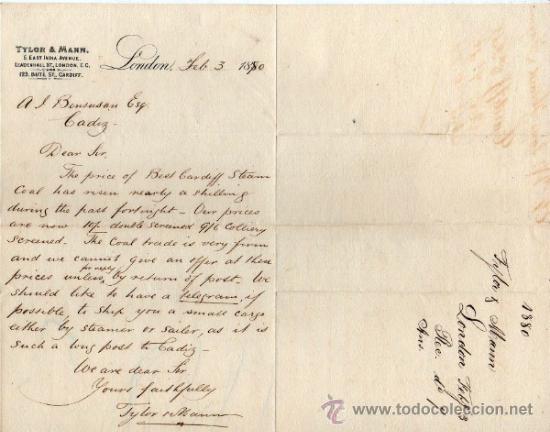 TYLOR & MANN.
5 EAST INDIA AVENUE,
LEADENHALL ST., LONDON, E.C.
AND
123, BUTE ST., CARDIFF.
London, Feb. 3 1880
A J Bensusan Esq
Cadiz -
Dear Sir,
The price of Best Cardiff Steam
Coal has risen nearly a shilling
during the past fortnight - Our prices
are now 10/- double screened 9/6 Colliery
screened. The Coal trade is very firm
and we cannot give an offer at these
prices unless for reply by return of post. We
should like to have a telegram, if
possible, to ship you a small cargo
either by steamer or sailer, as it is
such a long post to Cadiz -
We are dear Sir
Yours faithfully
Tylor & Mann
1880
Tylor & Mann
London Feb 3
Rec. do
Ans.
todocoleccion.net